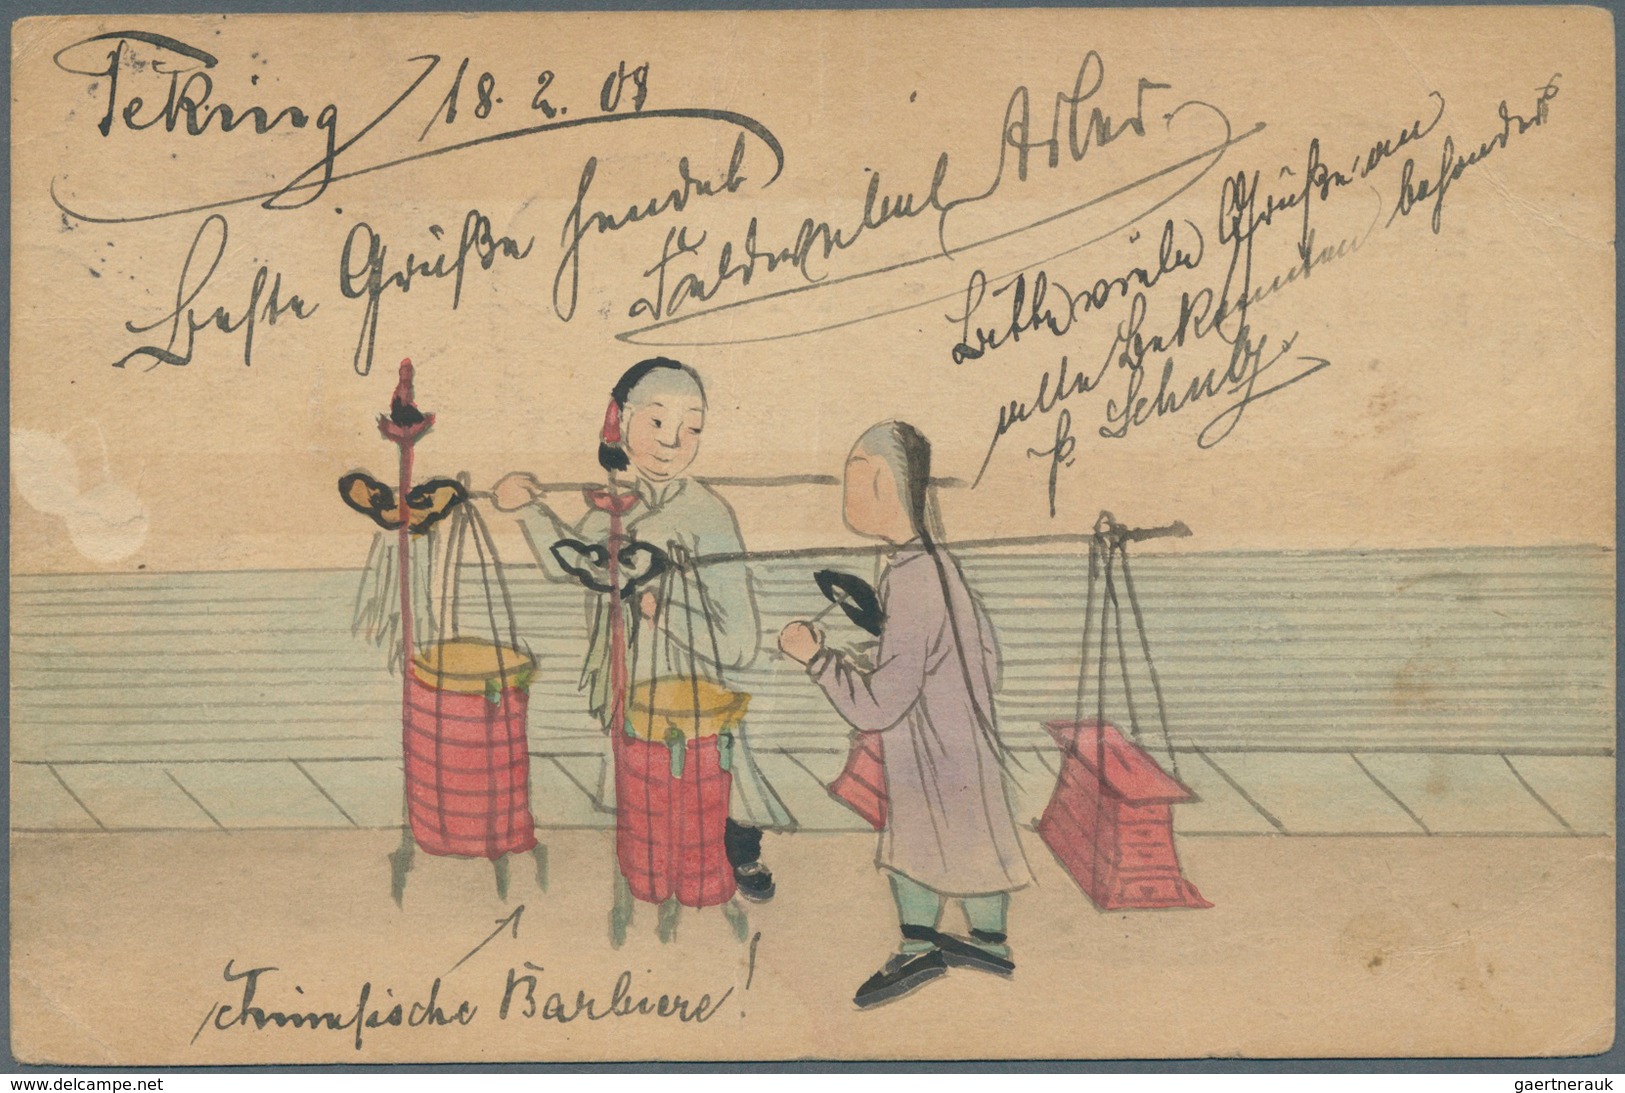 Peking 18. 2. 08
Beste Grüße sendet
Feldwebel Adler.
Bitte viele Grüße an
alle Bekannten besonders
H. Schulz.
Chinesische Barbiere!
www.delcampe.net
gaertnerauk